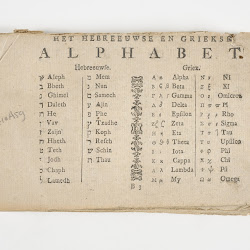 HET HEBREEUWSE EN GRIEKSE
ALPHABET.
Hebreeuwse. Griex.
א Aleph מ Mem Α α Alpha Ν ν Ni
ב Beth נ Nun Β β Beta Ξ ξ Xi
ג Ghimel ס Samech Γ γ Gamma Ο ο Omicron
ד Daleth ע Ajin Δ δ Delta Π π Pi
ה He פ Phe Ε ε Epsilon Ρ ρ Rho
ו Vav צ Tzadhe Ζ ζ Zeta Σ σ Sigma
ז Zajin ק Koph Η η Eta Τ τ Tau
ח Heth ר Resch Θ θ Thema Υ υ Upsilon
ט Teth ש Schin Ι ι Iota Φ φ Phi
י Jodh ת Thau Κ κ Cappa Χ χ Chi
כ Chaph Λ λ Lambda Ψ ψ Psi
ל Lamedh Μ μ My Ω ω Omega
B 3